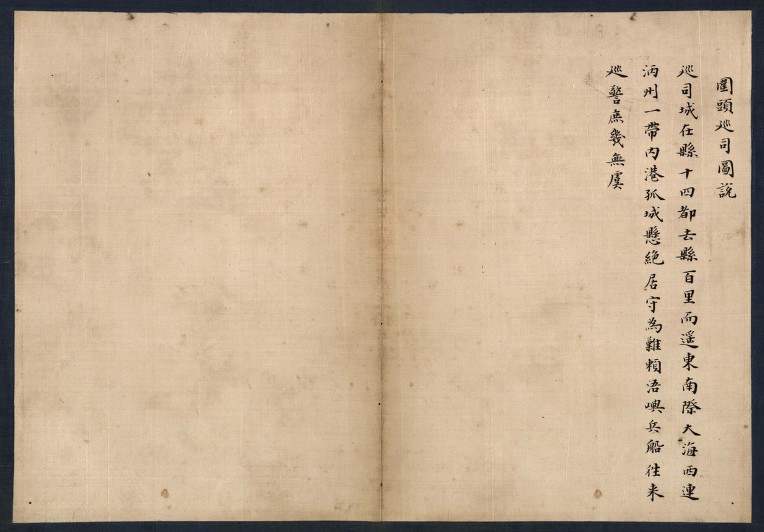 圍頭巡司圖說
巡司城在縣十四都去縣百里而遥東南際大海西連
洒州一帶内港孤城懸絶居守為難頼浯嶼兵船往来
巡警庶幾無虞